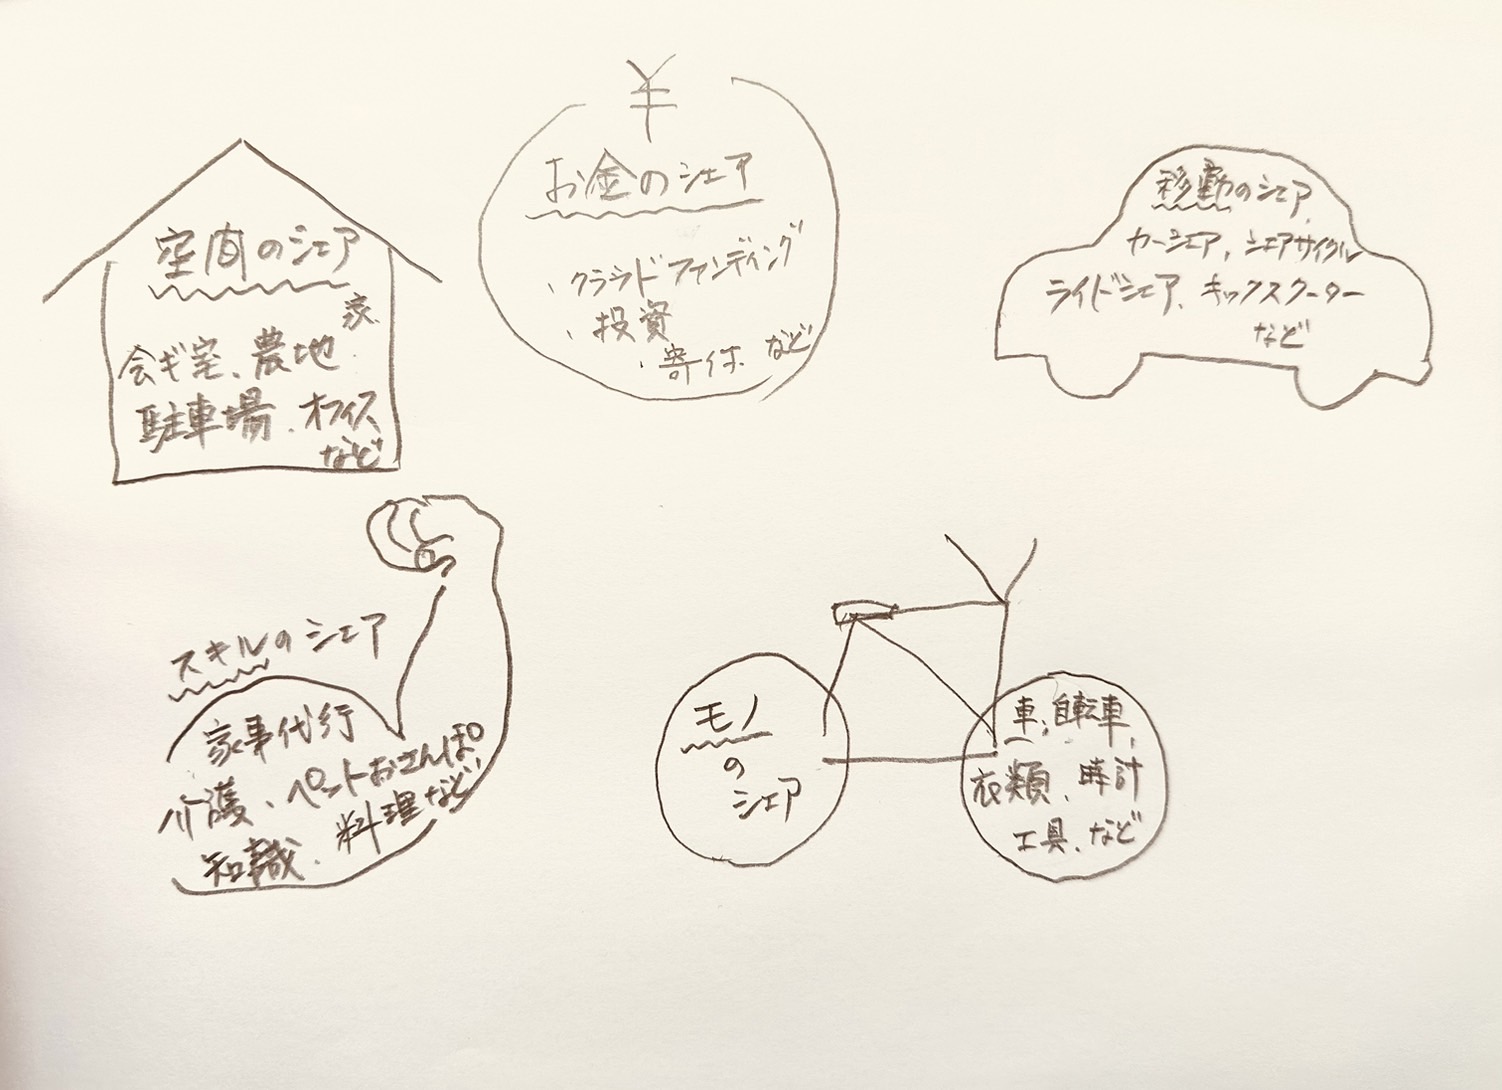 空間のシェア
家、
会ギ室、農地
駐車場、オフィス
など
¥
お金のシェア
・クラウドファンディング
・投資
・寄付 など
移動のシェア
カーシェア、シェアサイクル
ライドシェア、キックスクーター
など
スキルのシェア
家事代行
介護、ペットおさんぽ
知識、料理など
モノ
の
シェア
車、自転車、
衣類、時計
工具、など